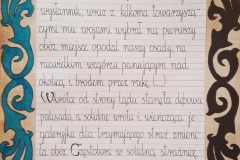 wysłannik, wraz z kilkoma towarzyszą-
cymi mu wojami wybrał na pierwszy
obóz miejsce opodal naszej osady, na
niewielkim wzgórzu panującym nad
okolicą i brodem przez rzekę. (...)
Wkrótce od strony lądu stanęła dębowa
palisada, a solidne wrota i wieńcząca je
galeryjka dla trzymającego straż zmieni-
ła obóz Czestobora w solidną strażnicę.